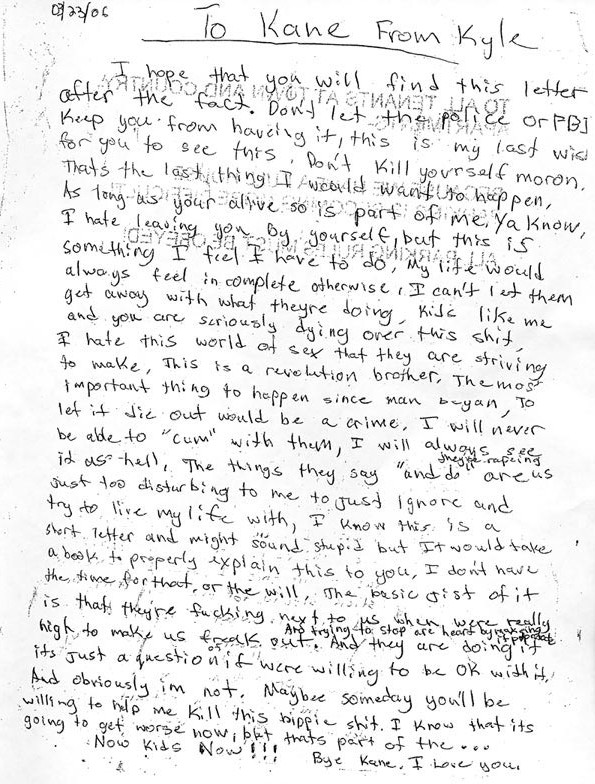 03/23/06
To Kane From Kyle
I hope that you will find this letter
after the fact. Don't let the police or FBI
Keep you from haveing it, this is my last wish
for you to see this. Don't Kill yourself moron,
Thats the last thing I would want to happen,
As long as your alive so is part of me, Ya Know,
I hate leaving you by yourself, but this is
something I feel I have to do, My life would
always feel in complete otherwise, I can't let them
get away with what theyre doing, Kids like me
and you are seriously dying over this shit,
I hate this world of sex that they are striving
to make, This is a revolution brother, The most
important thing to happen since man began, To
let it die out would be a crime, I will never
be able to "cum" with them, I will always see
it as hell, The things they say "and do" are us
theyre rapeing
just too disturbing to me to just Ignore and
try to live my life with, I Know this is a
short letter and might sound stupid but It would take
a book to properly explain this to you, I dont have
the time for that, or the will, The basic gist of it
is that they're fucking next to us when were really
high to make us freak out. And they are doing it
And trying to stop are heart by
its just a question of if were willing to be OK with it,
And obviously im not, Maybee someday you'll be
willing to help me Kill this hippie shit. I Know that its
going to get worse now, but thats part of the ...
Now Kids Now!!!
Bye Kane, I Love you,
TO ALL TENANTS AT TOWN AND COUNTRY
APARTMENTS
ALL PARKING RULES MUST BE OBEYED